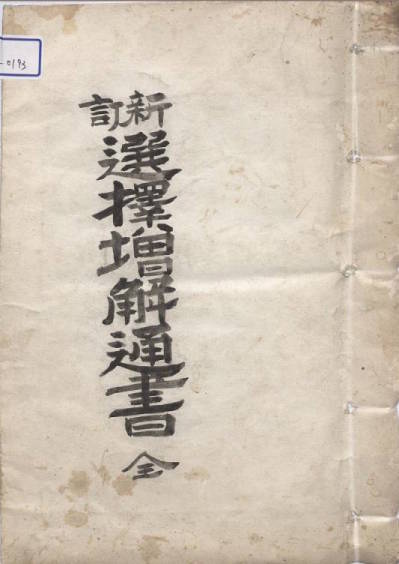 新訂
選擇增解通書
全
-0193